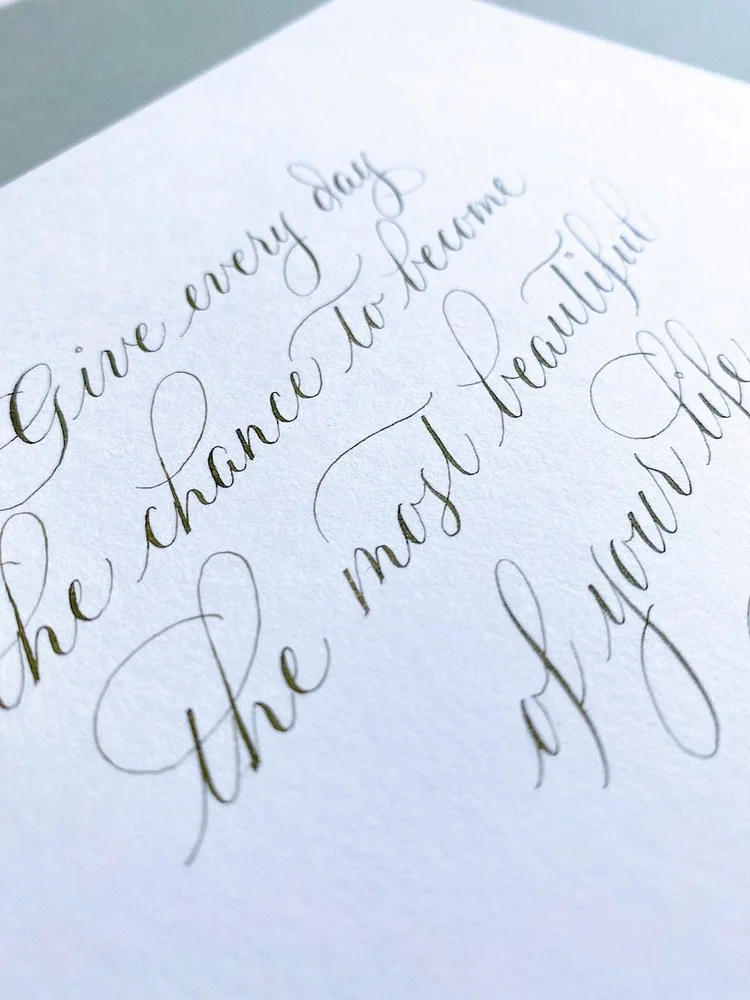 Give every day
the chance to become
the most beautiful
of your life